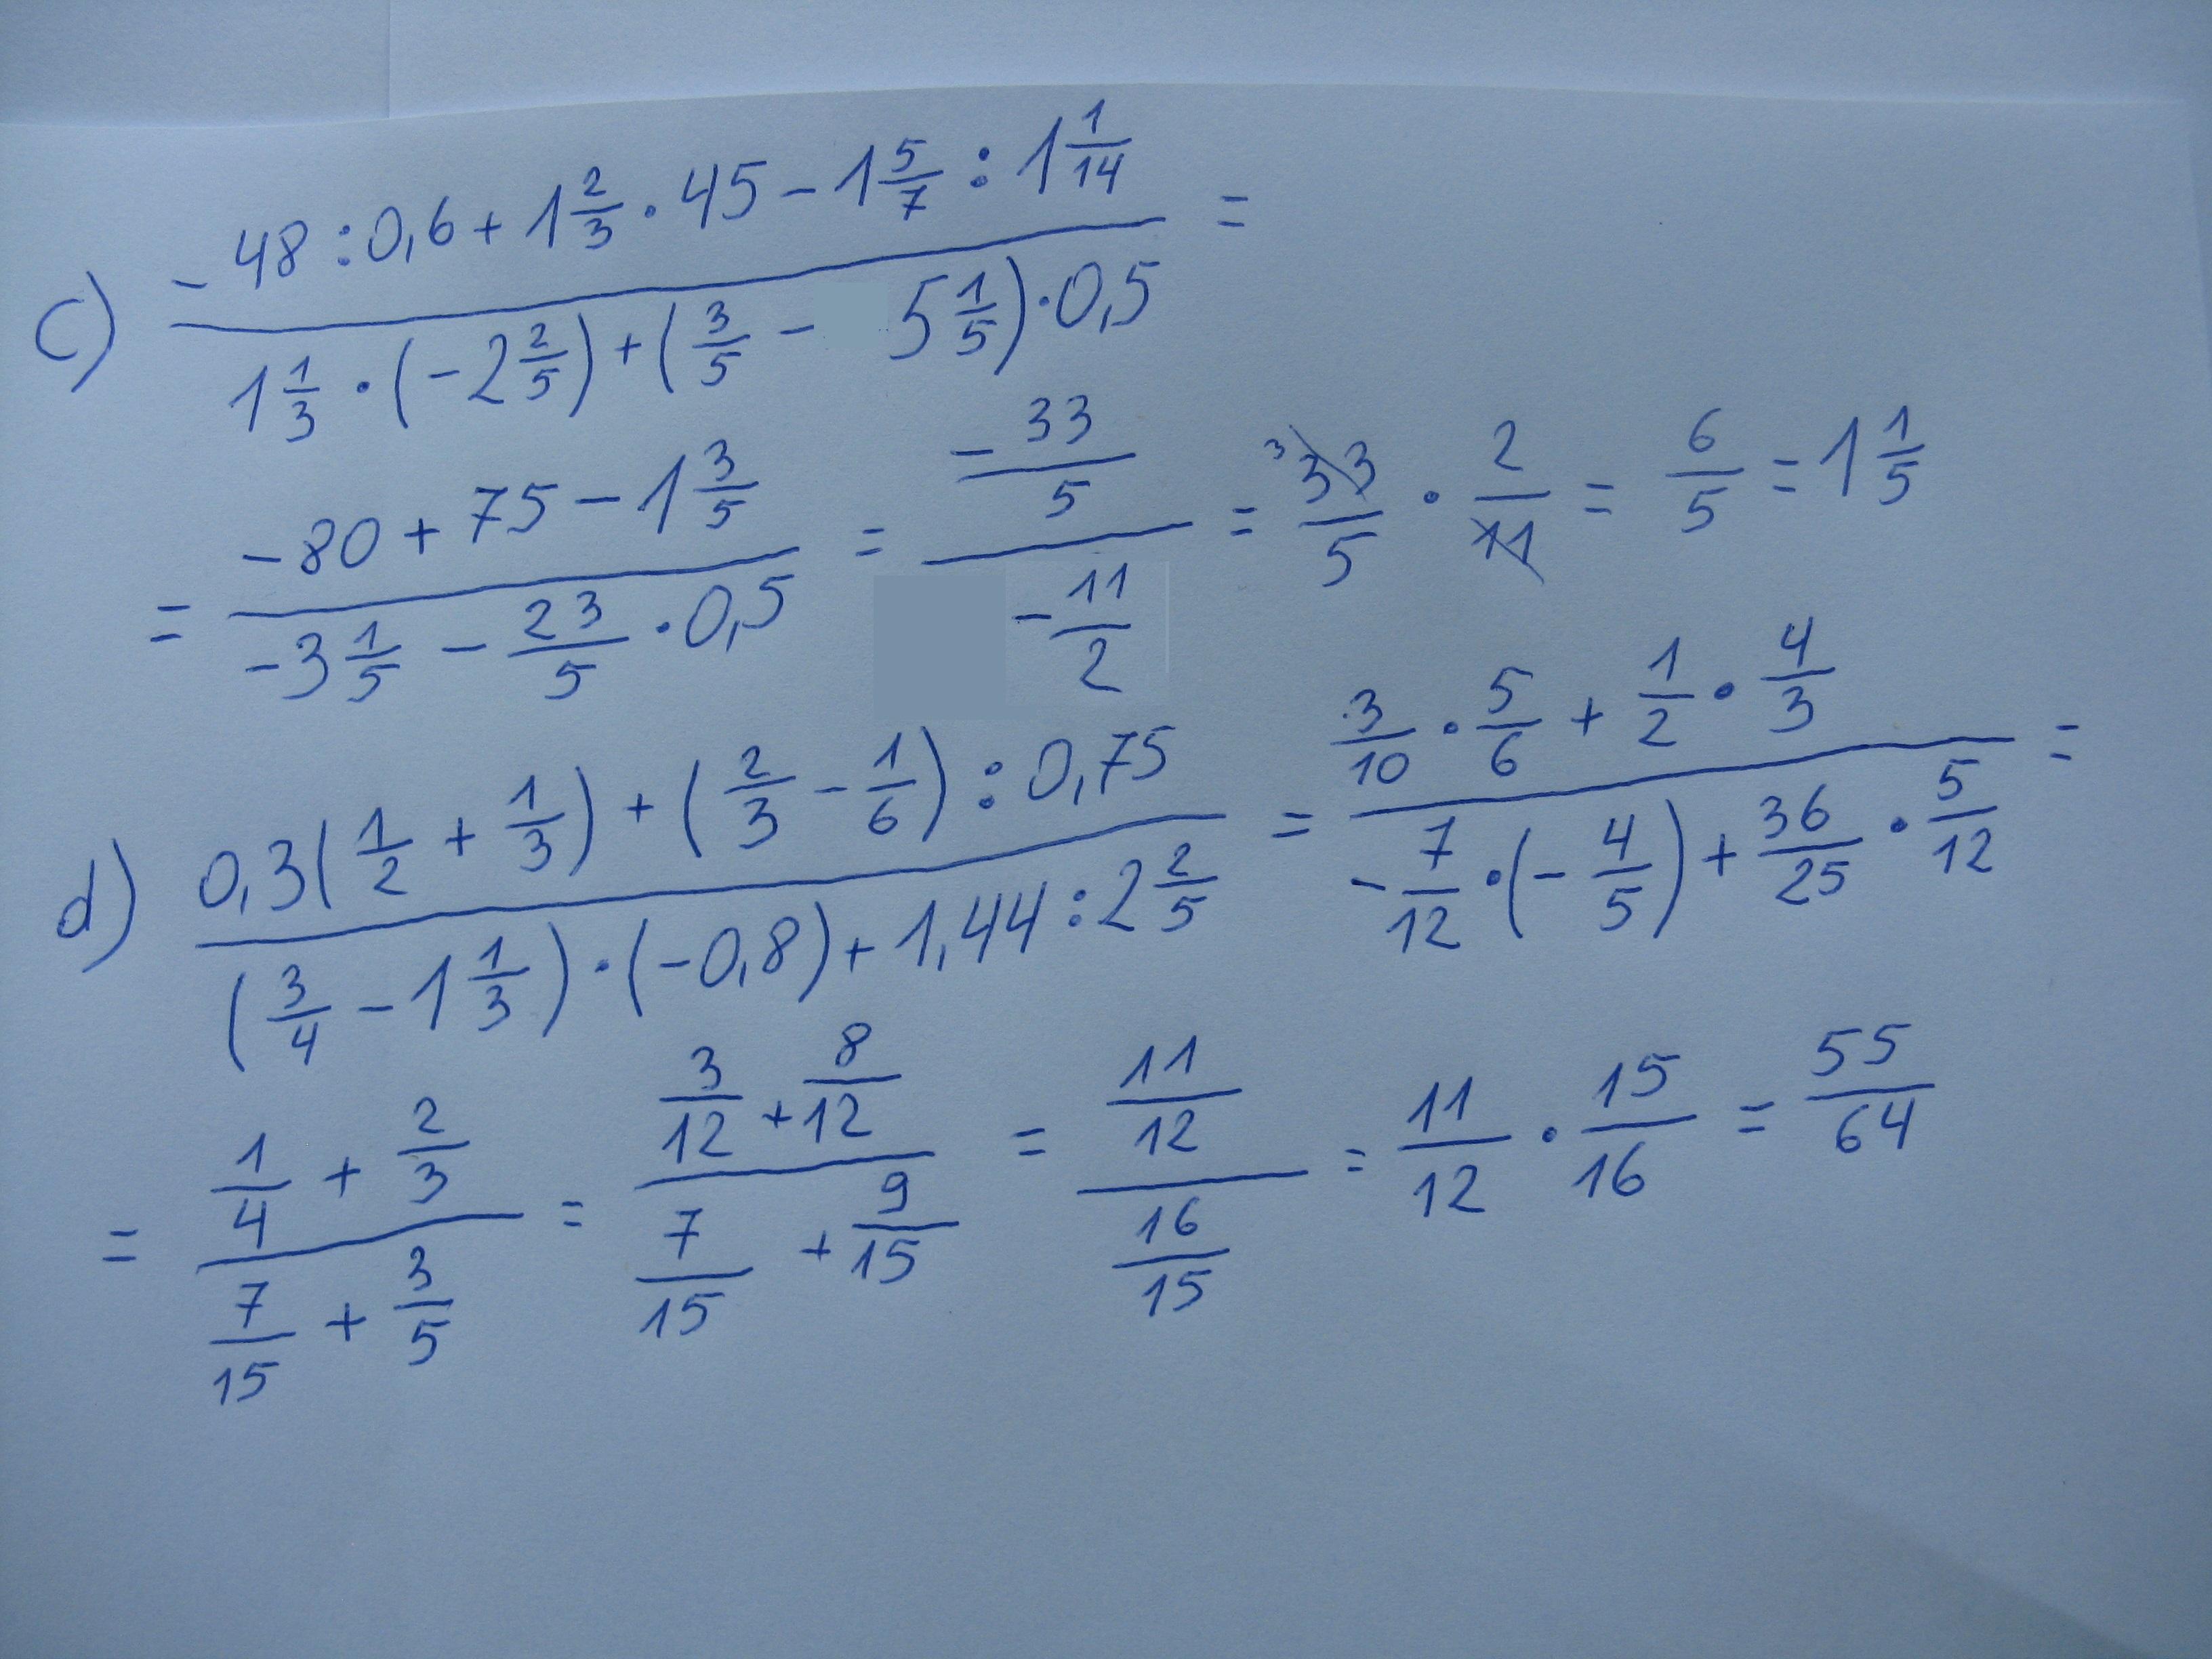 c) (-48 : 0,6 + 1 2/3 · 45 - 1 5/7 : 1 1/14) / (1 1/3 · (-2 2/5) + (3/5 - 5 1/5) · 0,5) =
= (-80 + 75 - 1 3/5) / (-3 1/5 - 23/5 · 0,5) = (-33/5) / (-11/2) = 3 33/5 · 2/11 = 6/5 = 1 1/5
d) (0,3(1/2 + 1/3) + (2/3 - 1/6) : 0,75) / ((3/4 - 1 1/3) · (-0,8) + 1,44 : 2 2/5) = (3/10 · 5/6 + 1/2 · 4/3) / (-7/12 · (-4/5) + 36/25 · 5/12) =
= (1/4 + 2/3) / (7/15 + 3/5) = (3/12 + 8/12) / (7/15 + 9/15) = (11/12) / (16/15) = 11/12 · 15/16 = 55/64